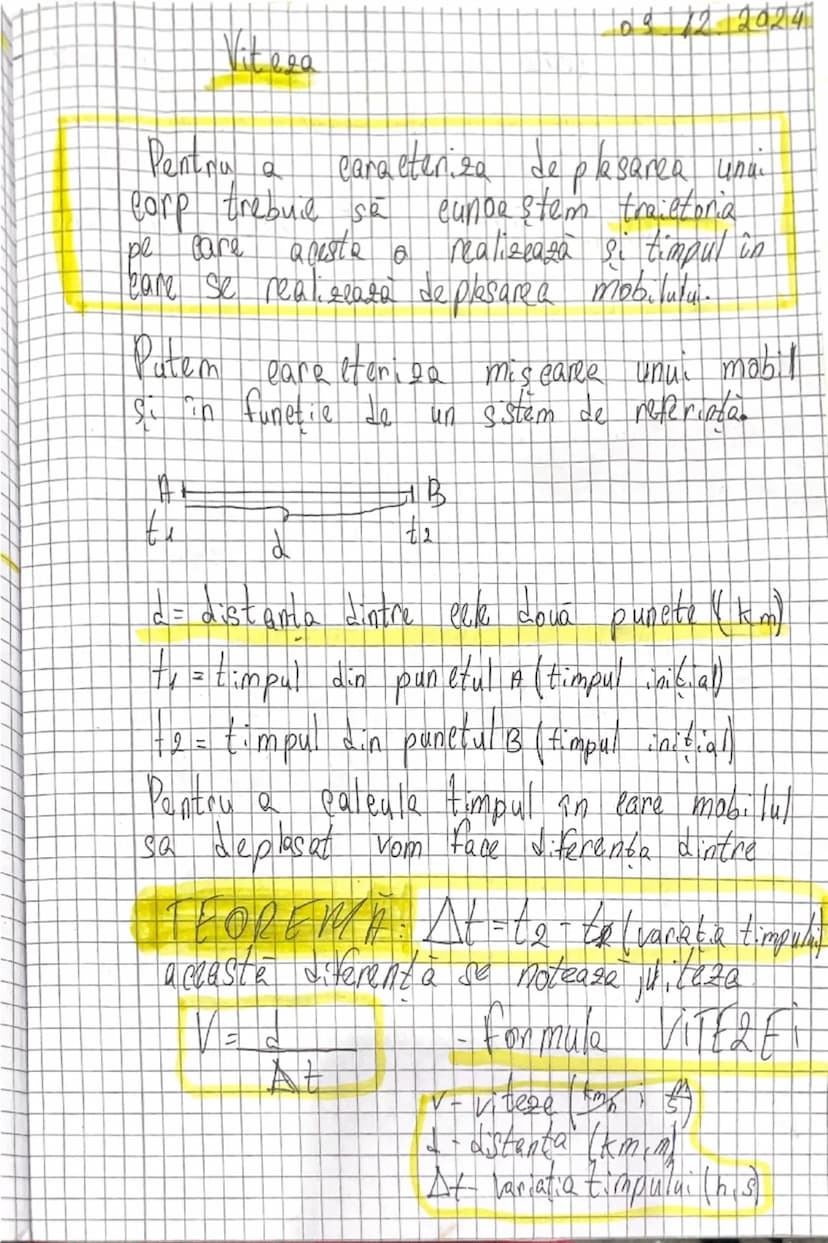 09.12.2024
Viteza
Pentru a caracteriza deplasarea unui
corp trebuie să cunoaștem traietoria
pe care acesta o realizează și timpul în
care se realizează deplasarea mobilului.
Putem caracteriza mișcarea unui mobil
și în funcție de un sistem de referință.
A B
t1 d t2
d = distanța dintre cele două puncte (km)
t1 = timpul din punctul A (timpul inițial)
t2 = timpul din punctul B (timpul inițial)
Pentru a calcula timpul în care mobilul
sa deplasat vom face diferența dintre
TEOREMĂ: Δt = t2 - (variația timpului)
această diferență se notează viteza
V = d / Δt - formula ViTEZEi
v - viteza (km/h ; m/s)
d - distanța (km, m)
Δt - variația timpului (h, s)